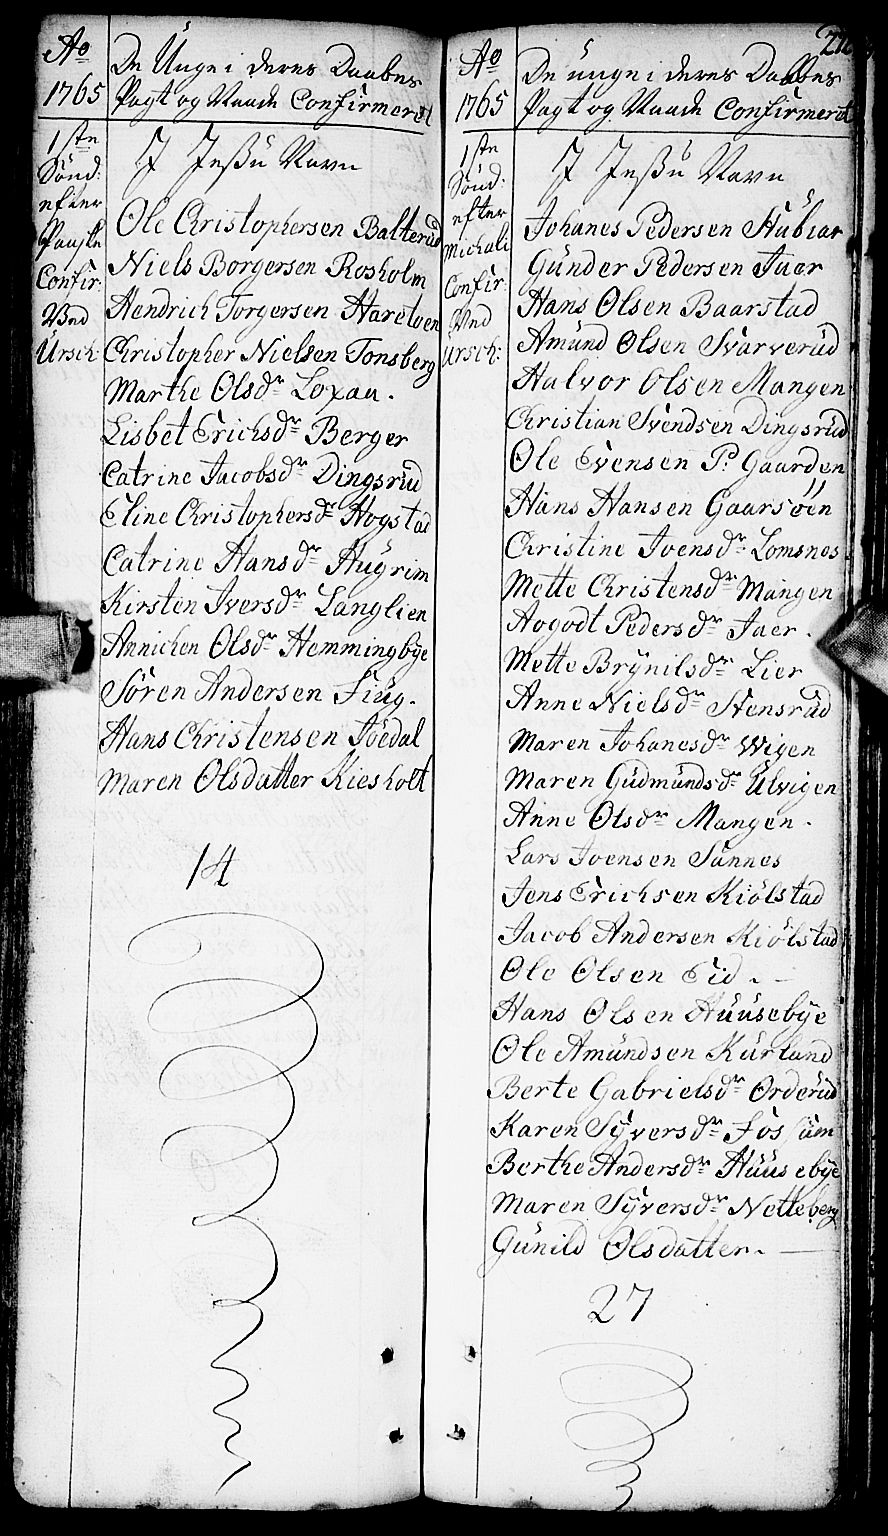 Ao
1765
De Unge i deres Daabes
Pagt og Naade Confirmeret
1ste
Sönd:
efter
Paaske
Confir:
Und
Ursch:
I Jessu Navn
Ole Christophersen Balterud
Niels Borgersen Rosholm
Hendrich Torgersen Haretoen
Christopher Nielsen Tonsberg
Marthe Olsdr Loxau.
Lisbet Erichsdr Berger
Catrine Jacobsdr Dingsrud
Eline Christophersdr Hogstad
Catrine Hansdr Hugrim
Kirsten Iversdr Langlien
Annichen Olsdr Hemmingbye
Sören Andersen Fiug.
Hans Christensen Töedal
Maren Olsdatter Kiesholt
14
Ao
1765
De unge i deres Daabes
Pagt og Naade Confirmeret
1ste
Sönd:
efter
Michali
Confir:
Und
Ursch:
I Jessu Navn
Johanes Pedersen Hubiar
Gunder Pedersen Juer
Hans Olsen Baarstad
Amund Olsen Svarverud
Halvor Olsen Mangen
Christian Svendsen Dingsrud
Ole Evensen Pr. Gaarden
Hans Hansen Gaarsöen
Christine Joensdr Lomsnes.
Mette Christensdr Mangen
Aogodt Pedersdr Jaer.
Mette Brynilsdr Lier
Anne Nielsdr Stensrud
Maren Johanesdr Wigen
Maren Gudmundsdr Ulvigen
Anne Olsdr Mangen.
Lars Joensen Sannes
Jens Erichsen Kiölstad
Jacob Andersen Kiölstad
Ole Olsen Eid.
Hans Olsen Huusebye
Ole Amundsen Kurland
Berte Gabrielsdr Orderud
Karen Syversdr Fossum
Berthe Andersdr Huusebye
Maren Syversdr Netteberg
Gunild Olsdatter.
27